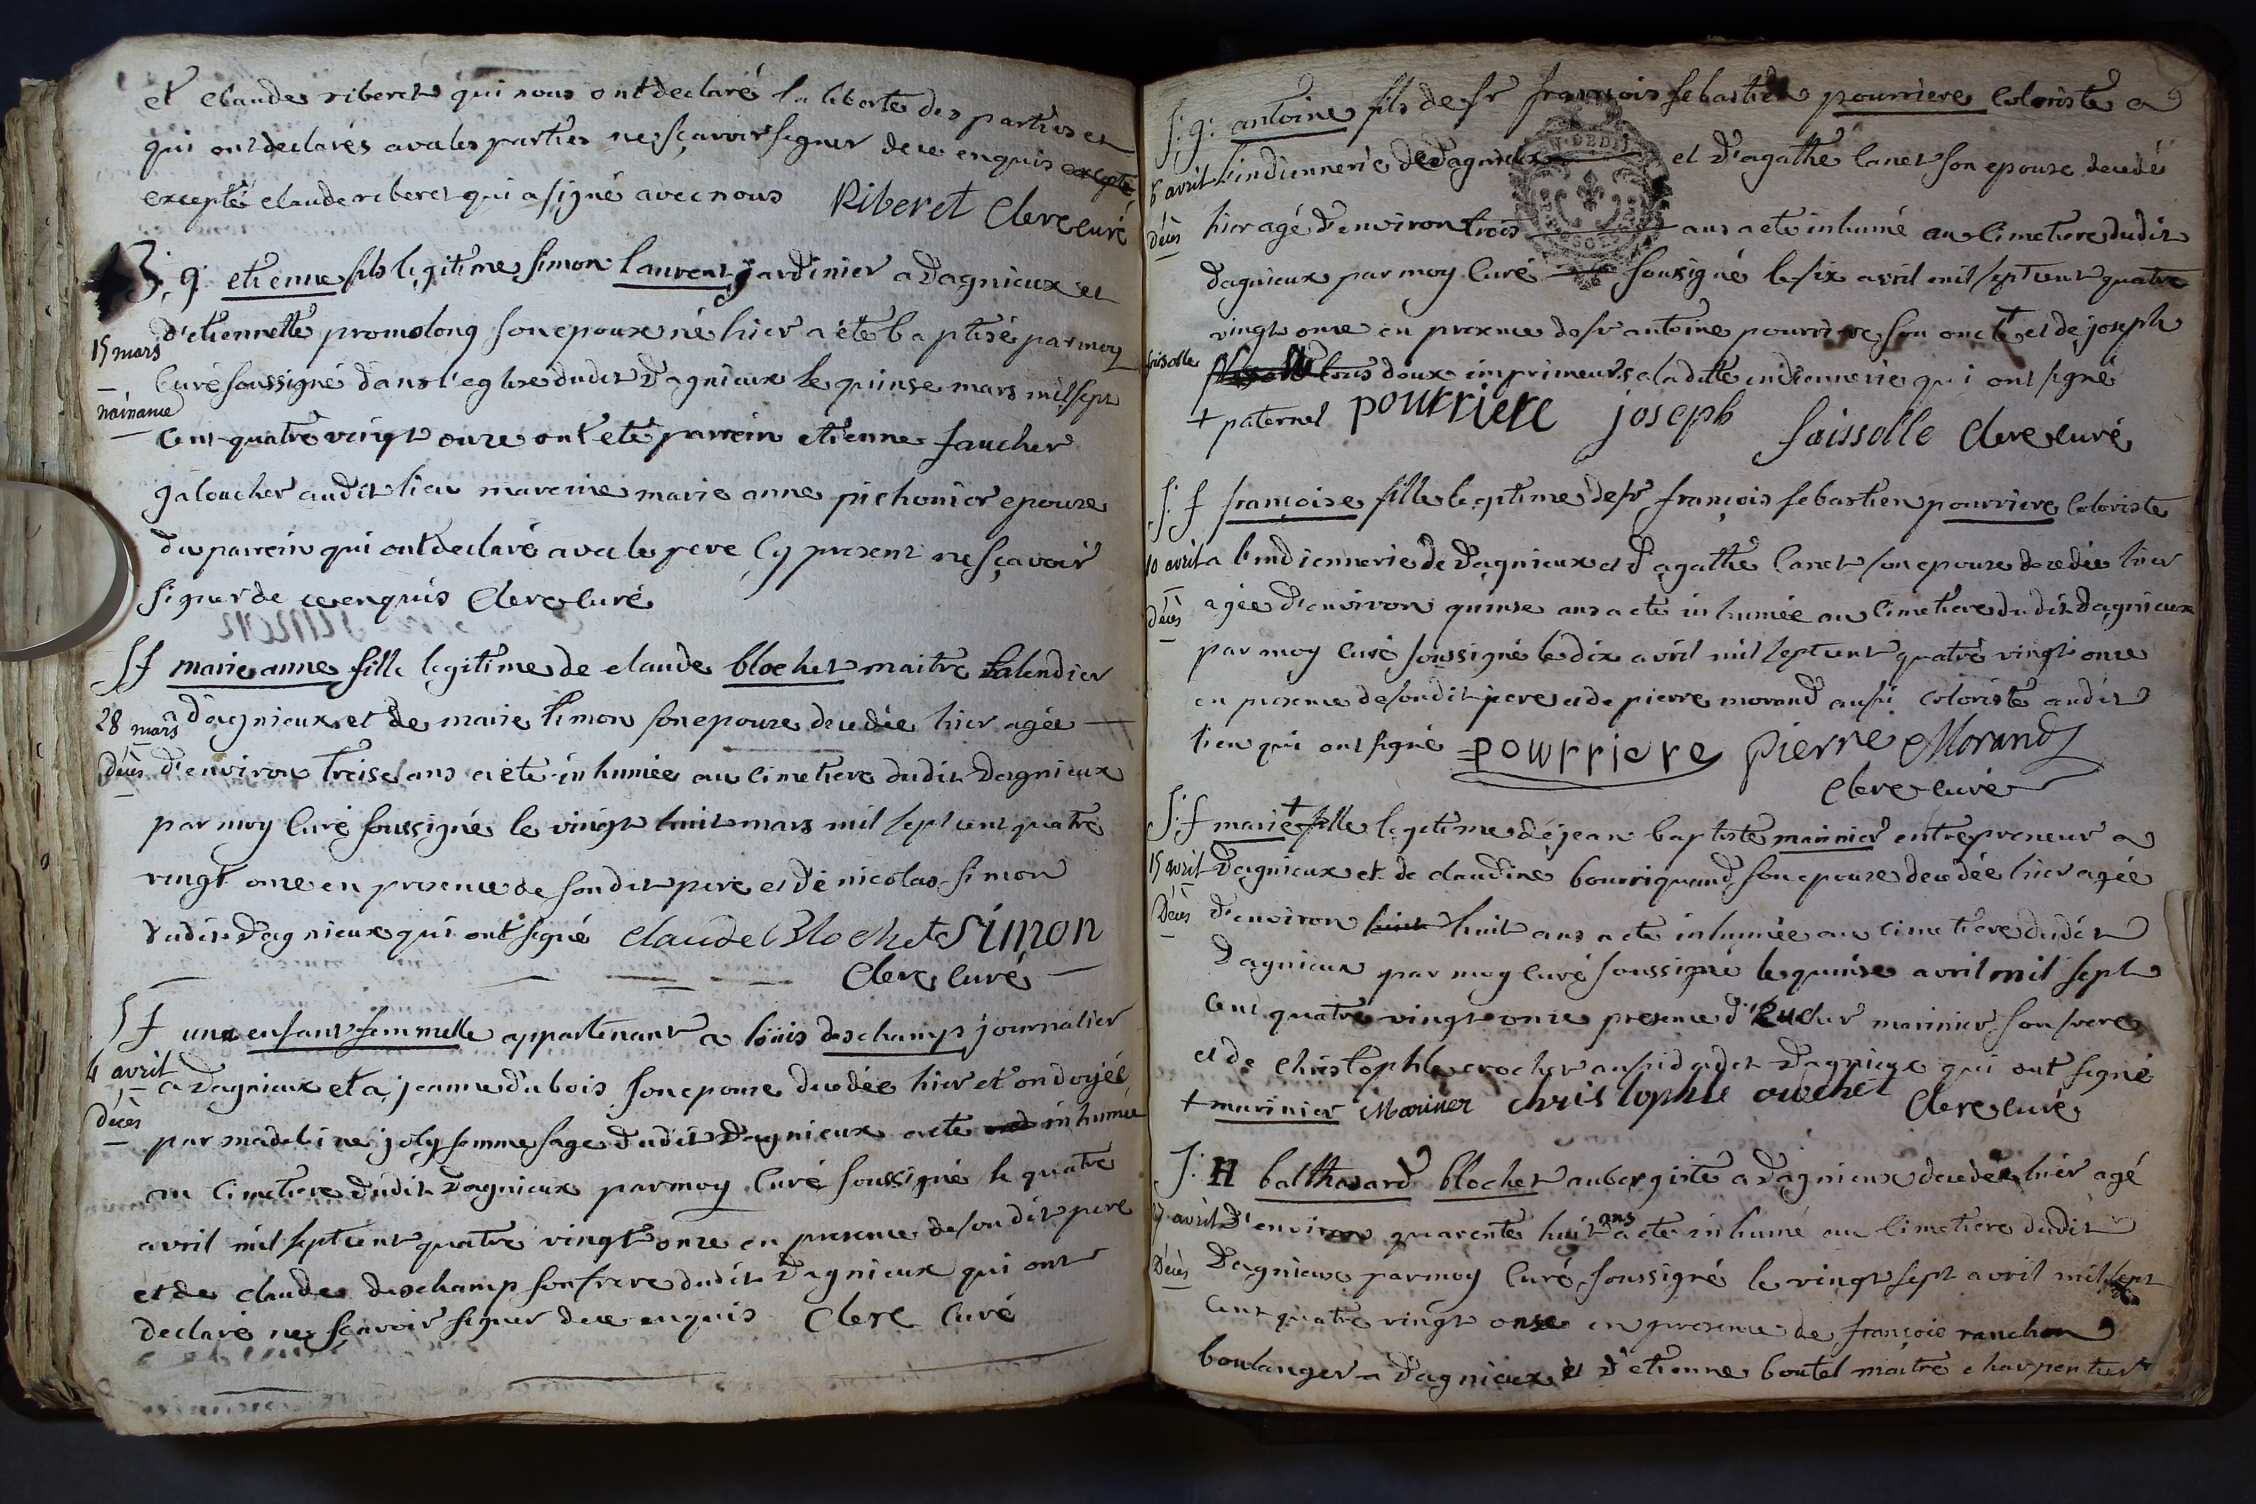 et claude riberet qui nous ont declaré la liberté des parties et
qui ont declarés avec les parties ne sçavoir signer de ce enquis excepté
excepté claude riberet qui a signé avec nous Riberet Clerc curé
S. g. etienne fils legitime simon laurent jardinier a Dagnieux et
d'etiennette promolong son epouse né hier a été baptisé par moy
15 mars
curé soussigné dans l'eglise dudit Dagnieux le quinse mars mil sept
naisance
cent quatre vingt onze ont eté parrein etienne faucher
galoucher audit lieu mareine marie anne pichonier epouse
du parrein qui ont declaré avec le pere cy present ne sçavoir
signer de ce enquis Clerc curé
S f marie anne fille legitime de claude blochet maitre
28 mars
a Dagnieux et de marie simon son epouse decedée hier agée
Décès
d'environ treise ans a été inhumée au cimetiere dudit Dagnieux
par moy curé soussigné le vingt huit mars mil sept cent quatre
vingt onze en presence de son dit pere et de nicolas simon
dudit Dagnieux qui ont signé claude Blochet Simon
Clerc curé
S f une enfant femmelle appartenant a loüis deschamp journalier
4 avril
a Dagnieux et a jeanne dubois son epouse decedée hier et ondoyée
Décès
par madeleine joly femme sage dudit Dagnieux a eté inhumée
au cimetiere dudit Dagnieux par moy curé soussigné le quatre
avril mil sept cent quatre vingt onze en presence de son dit pere
et de claude deschamp son frere dudit Dagnieux qui ont
declaré ne sçavoir signer de ce enquis Clerc curé
S: g: antoine fils de sr françois sebastien pourriere coloriste a
6 avril
l'indiennerie de Dagnieux et d'agathe lanet son epouse decedé
Décès
hier agé d'environ trois ans a eté inhumé au cimetiere dudit
Dagnieux par moy curé sousigné le six avril mil sept cent quatre
vingt onze en presence de sr antoine pourriere son oncle + et de joseph
soissolle
tous deux imprimeurs a la dite indiennerie qui ont signé
+ paternel pourriere joseph soissolle Clerc curé
S: f françoise fille legitime de sr françois sebastien pourriere coloriste
10 avril
a l'indiennerie de Dagnieux et d'agathe lanet son epouse decedée hier
Décès
agée d'environ quinse ans a eté inhumée au cimetiere dudit Dagnieux
par moy curé soussigné le dix avril mil sept cent quatre vingt onze
en presence de son dit pere et de pierre morand aussi coloriste audit
lieu qui ont signé pourriere Pierre Morand
Clerc curé
S: f marie + fille legitime de jean baptiste marinier entrepreneur a
15 avril
Dagnieux et de claudine bourriquand son epouse decedée hier agée
Décès
d'environ huit huit ans a eté inhumée au cimetiere dudit
Dagnieux par moy curé soussigné le quinse avril mil sept
cent quatre vingt onze presence d' marinier son frere
et de christophle crocher aussi dudit Dagnieux qui ont signé
+ marinier Mariner christophle Clerc curé
S: H balthasard blochet aubergiste a Dagnieux decedé hier agé
27 avril
d'environ quarente huit ans a eté inhumé au cimetiere dudit
Décès
Dagnieux par moy curé soussigné le vingt sept avril mil sept
cent quatre vingt onse en presence de françois ranchon
boulanger a Dagnieux et d'etienne boutel maitre charpentier